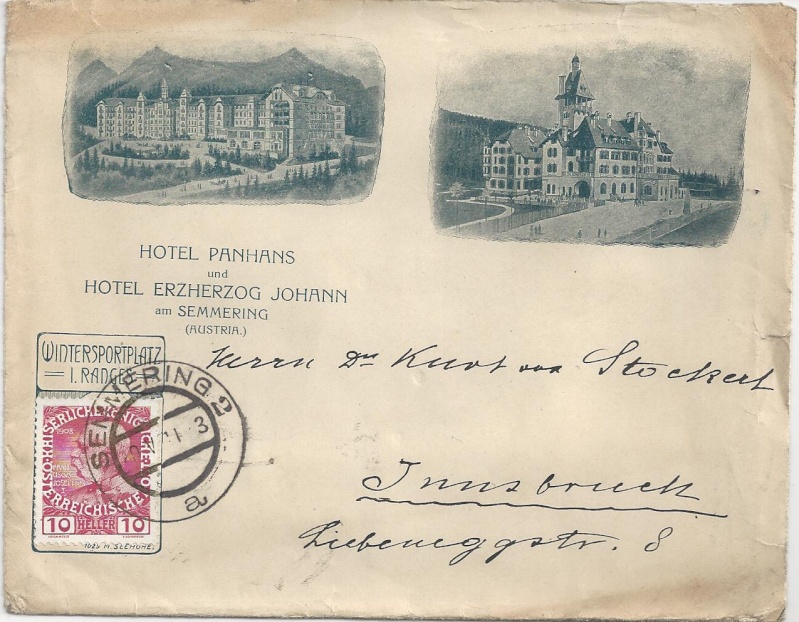 HOTEL PANHANS
und
HOTEL ERZHERZOG JOHANN
am SEMMERING
(AUSTRIA.)
WINTERSPORTPLATZ
= I. RANGES =
Herrn Dr Kurt von Stockert
Innsbruck
Liebeneggstr. 8
SEMMERING 2
a
KAISERLICHE KÖNIGLICHE ÖSTERREICHISCHE POST
1908
10 HELLER 10
1025 M. SEEHÖHE.